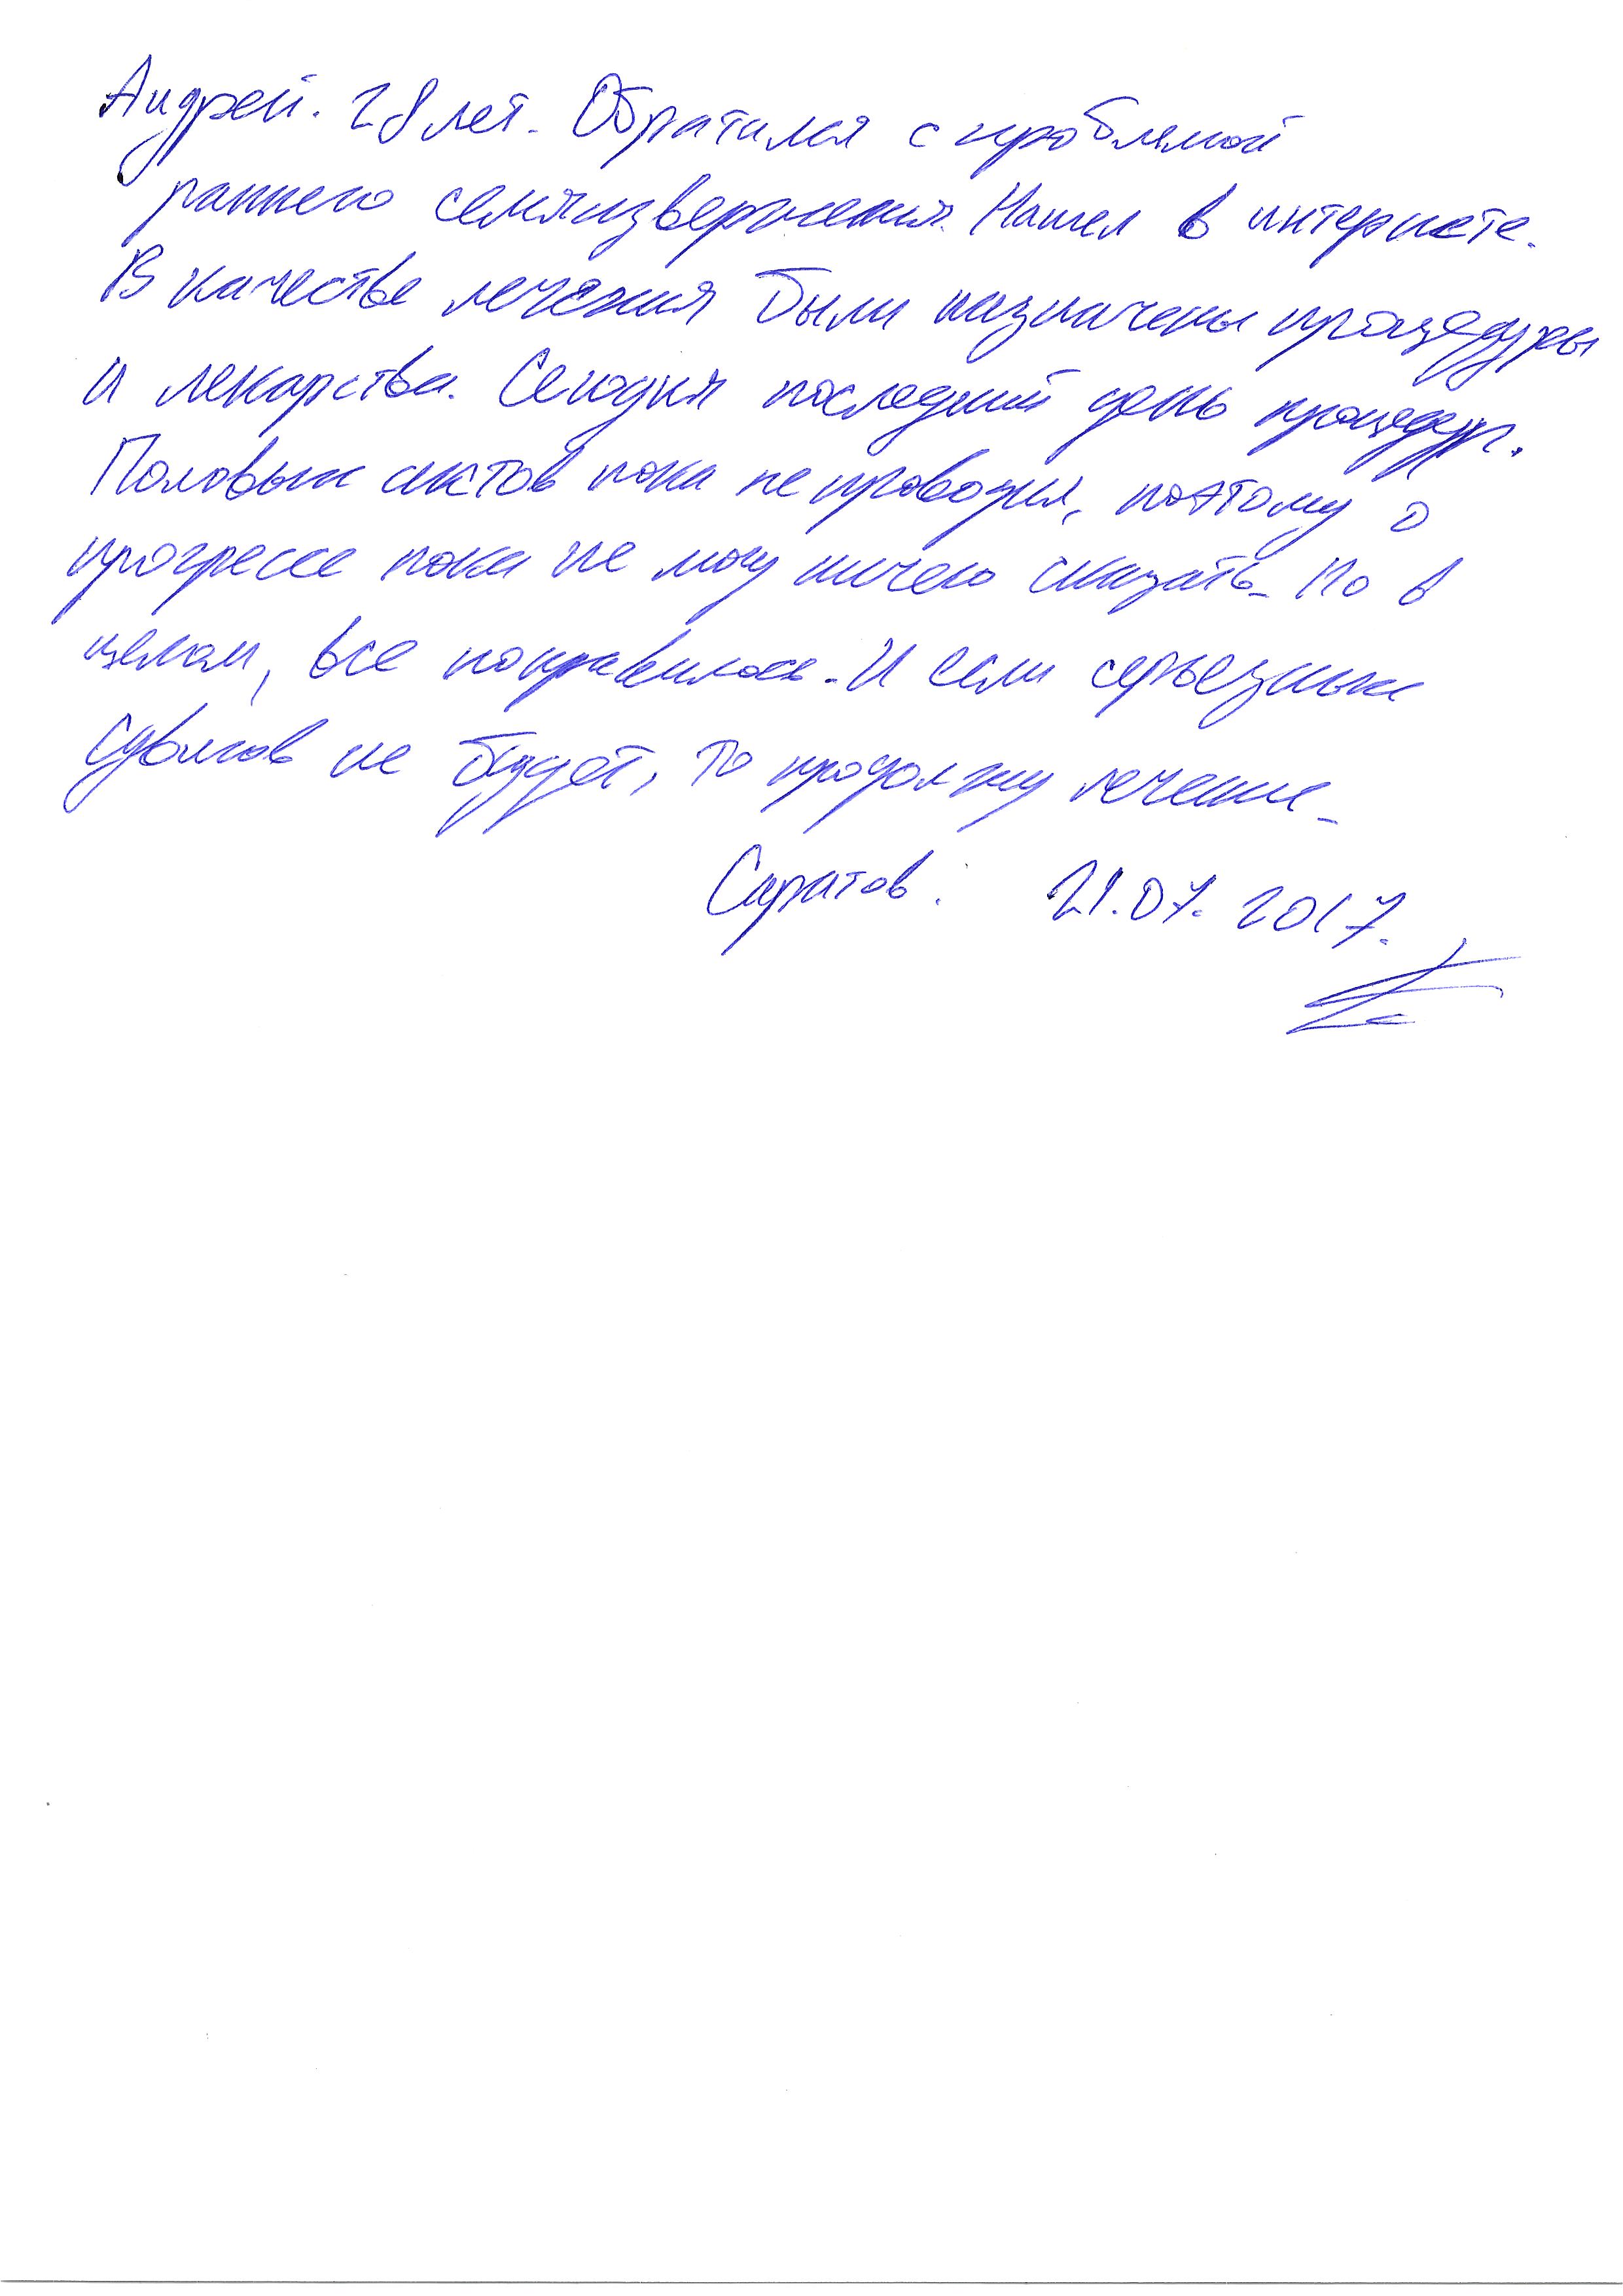 Андрей. 28 лет. Обратился с проблемой
раннего семяизвержения. Нашел в интернете.
В качестве лечения были назначены процедуры
и лекарства. Сегодня последний день процедур.
Половых актов пока не проводил, поэтому о
прогрессе пока не могу ничего сказать. Но в
целом, все понравилось. И если серьезных
сдвигов не будет, то продолжу лечение.
Саратов. 21.07.2017.